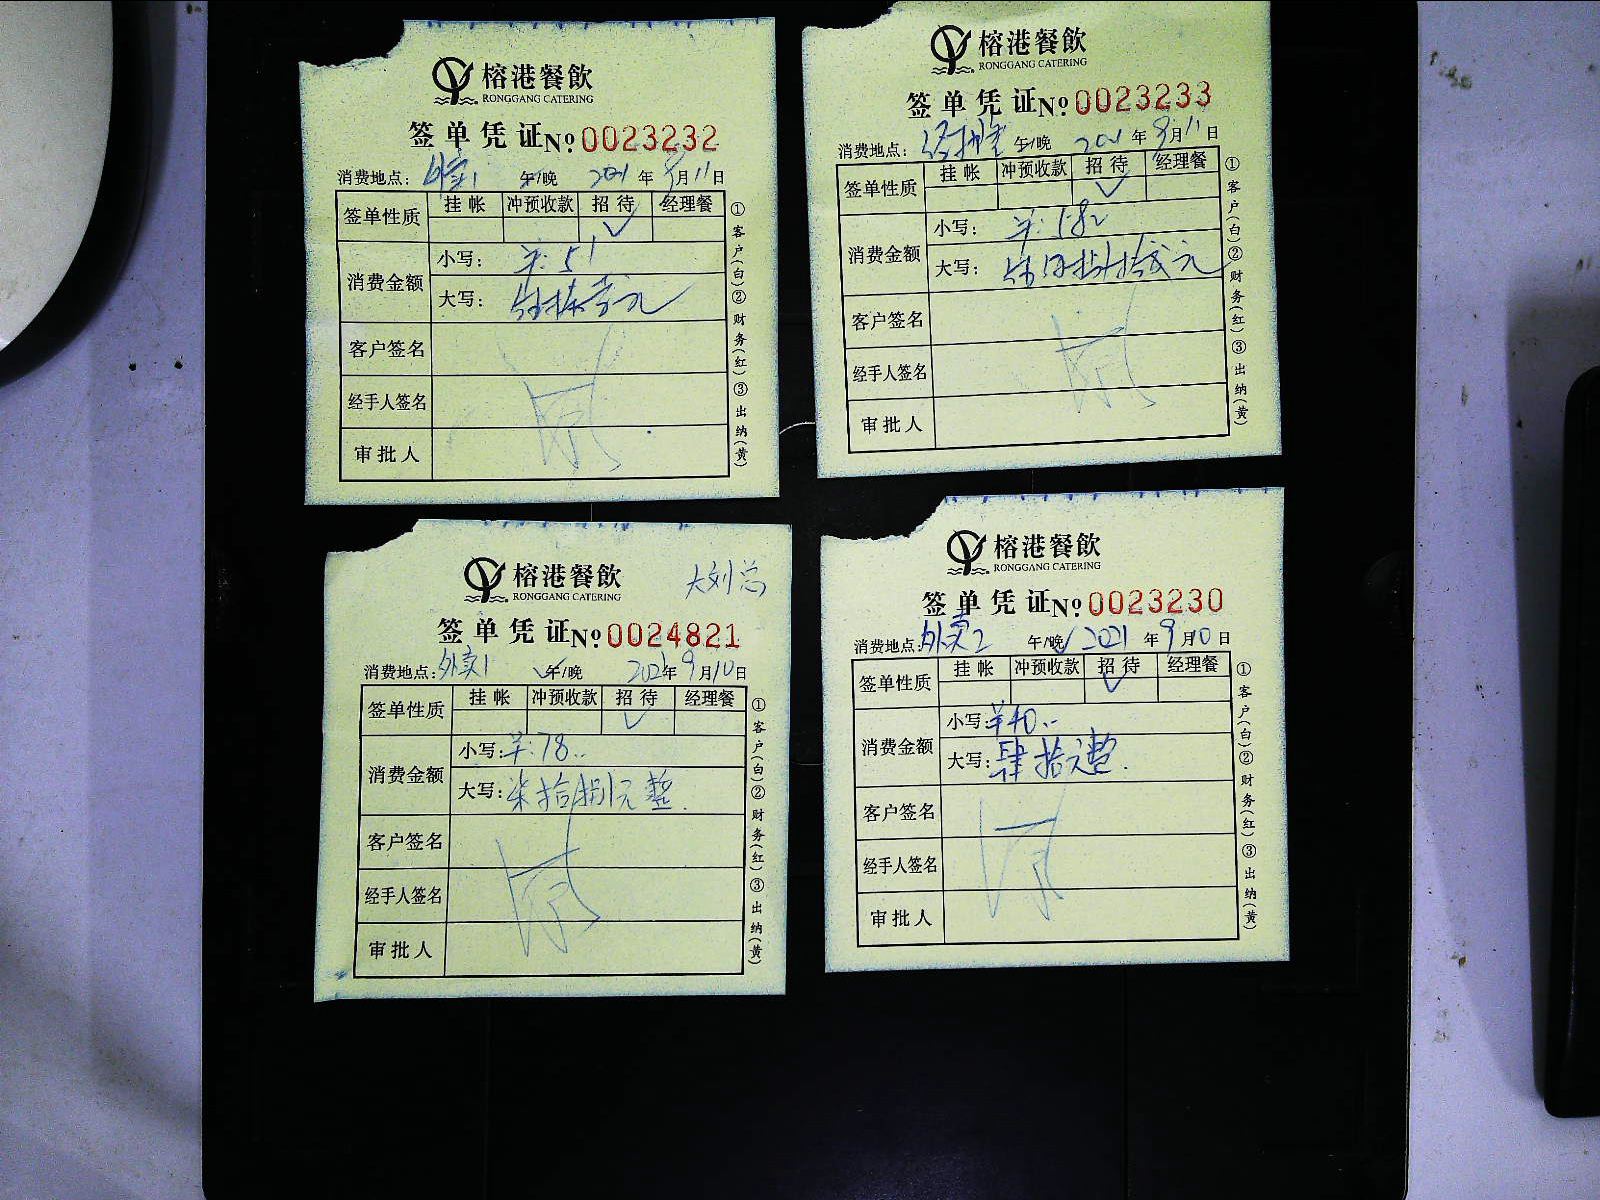 榕港餐飲
RONGGANG CATERING
签单凭证 No 0023232
消费地点：外卖1 午/晚 2021年9月11日
签单性质 挂帐 冲预收款 招待 经理餐
✓
消费金额 小写：¥:51
大写：伍拾壹元
客户签名
经手人签名
审批人
①客户(白)②财务(红)③出纳(黄)
榕港餐飲
RONGGANG CATERING
签单凭证 No 0023233
消费地点： 午/晚 2021年9月11日
签单性质 挂帐 冲预收款 招待 经理餐
✓
消费金额 小写：¥:582
大写：伍佰捌拾贰元
客户签名
经手人签名
审批人
①客户(白)②财务(红)③出纳(黄)
榕港餐飲
RONGGANG CATERING
大刘总
签单凭证 No 0024821
消费地点：外卖1 ✓午/晚 2021年9月10日
签单性质 挂帐 冲预收款 招待 经理餐
✓
消费金额 小写：¥:78..
大写：柒拾捌元整.
客户签名
经手人签名
审批人
①客户(白)②财务(红)③出纳(黄)
榕港餐飲
RONGGANG CATERING
签单凭证 No 0023230
消费地点：外卖2 午/晚✓ 2021年9月10日
签单性质 挂帐 冲预收款 招待 经理餐
✓
消费金额 小写：¥40..
大写：肆拾元整.
客户签名
经手人签名
审批人
①客户(白)②财务(红)③出纳(黄)